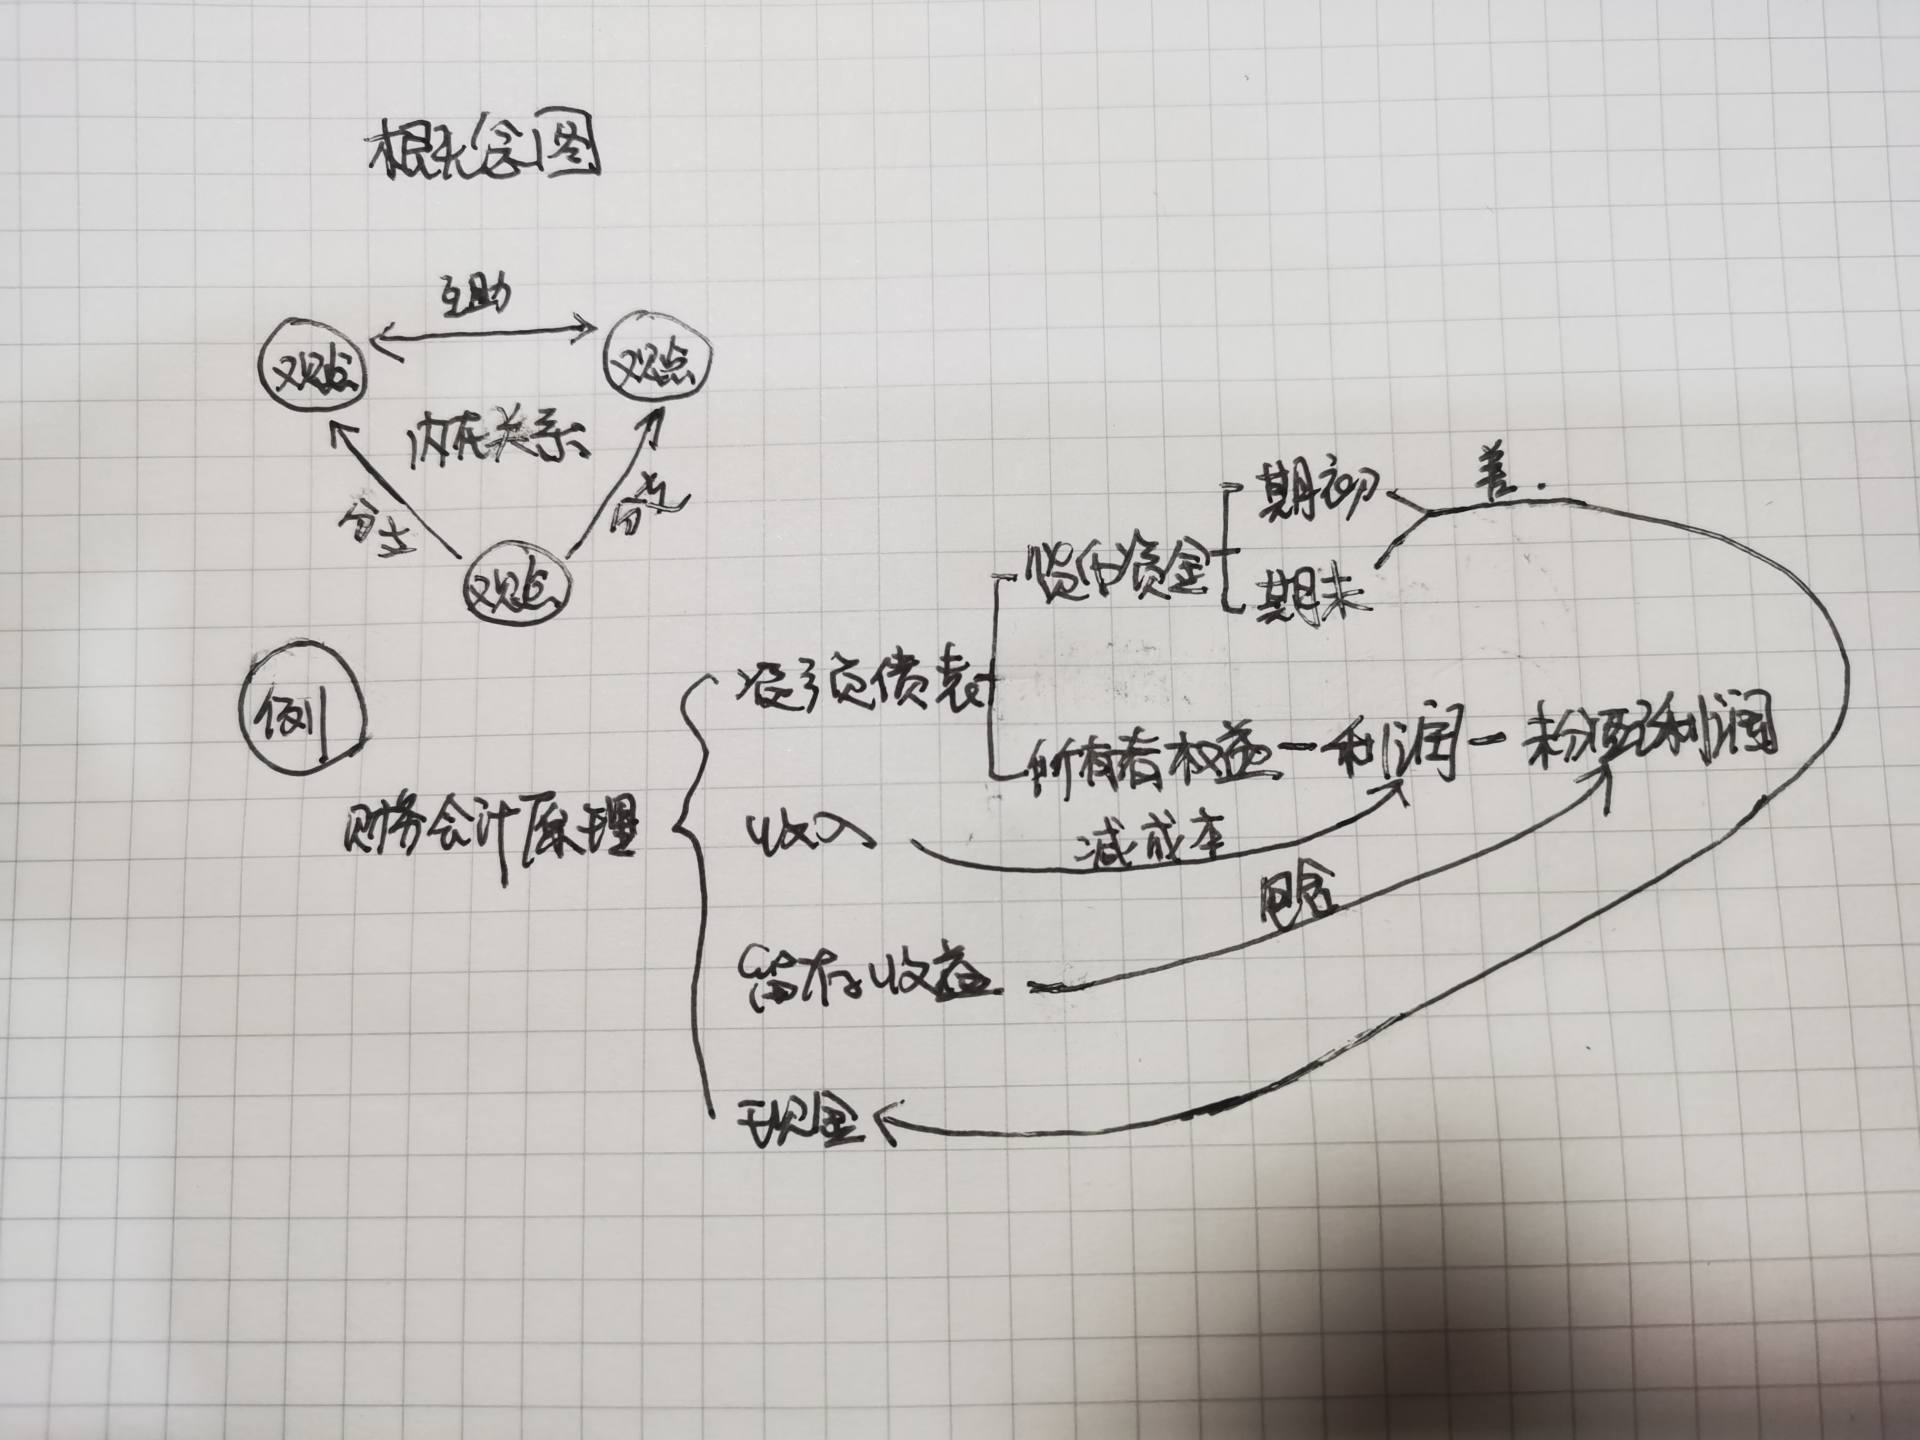 概念图
互助
观点
观点
内在关系
分支
分支
观点
例
财务会计原理
资产负债表
货币资金
期初
期末
差.
所有者权益-利润-未分配利润
收入
减成本
包含
留存收益
现金